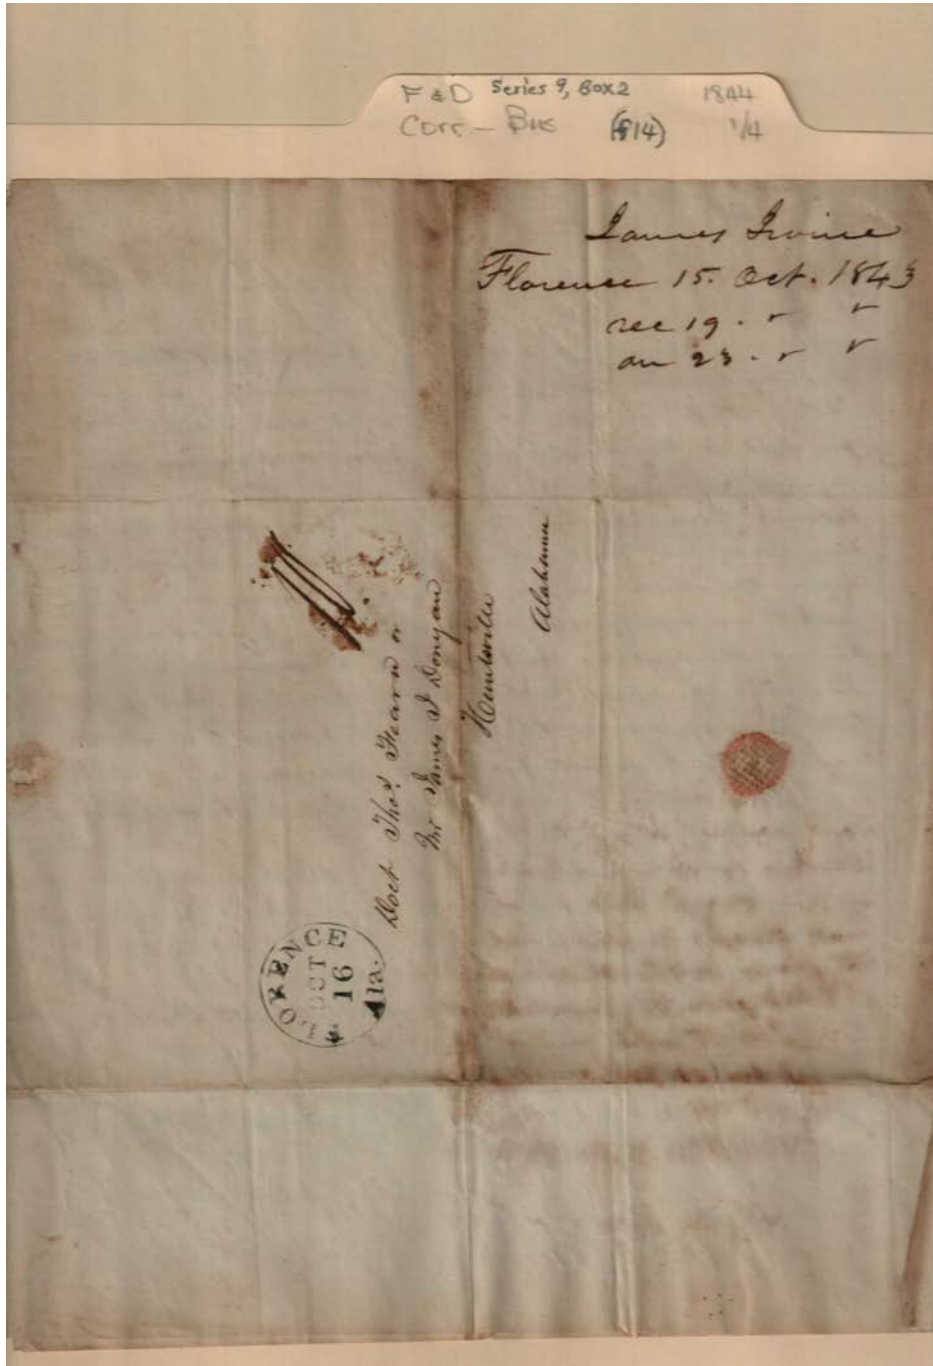 F & D Series 9, Box 2 1844
Corr - Bus (f14) 1/4
James Irvine
Florence 15. Oct. 1843
rec 19 . " "
an 23 . " "
Doct Thos. Fearn or
Mr James J Donegan
Huntsville
Alabama
FLORENCE
OCT
16
Ala.